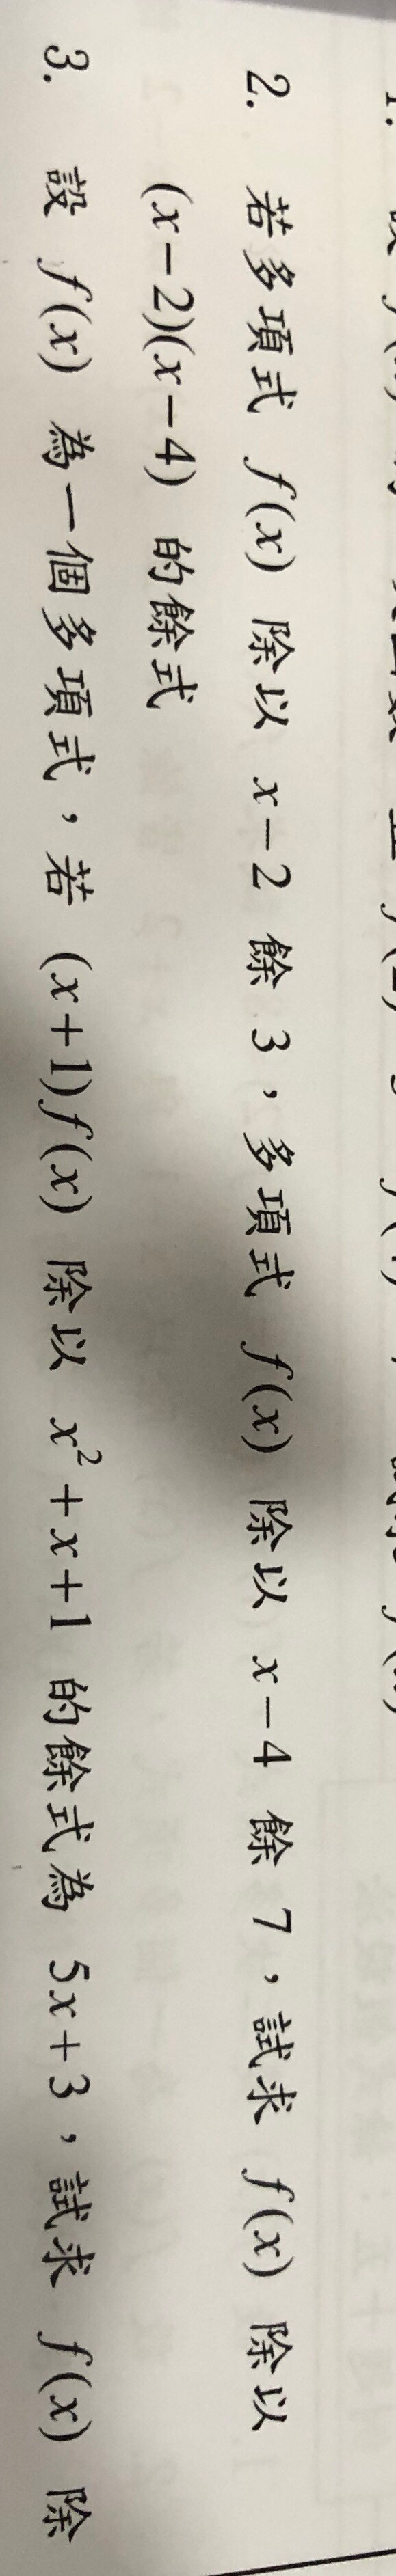 2. 若多項式 f(x) 除以 x−2 餘 3，多項式 f(x) 除以 x−4 餘 7，試求 f(x) 除以
(x−2)(x−4) 的餘式
3. 設 f(x) 為一個多項式，若 (x+1)f(x) 除以 x²+x+1 的餘式為 5x+3，試求 f(x) 除